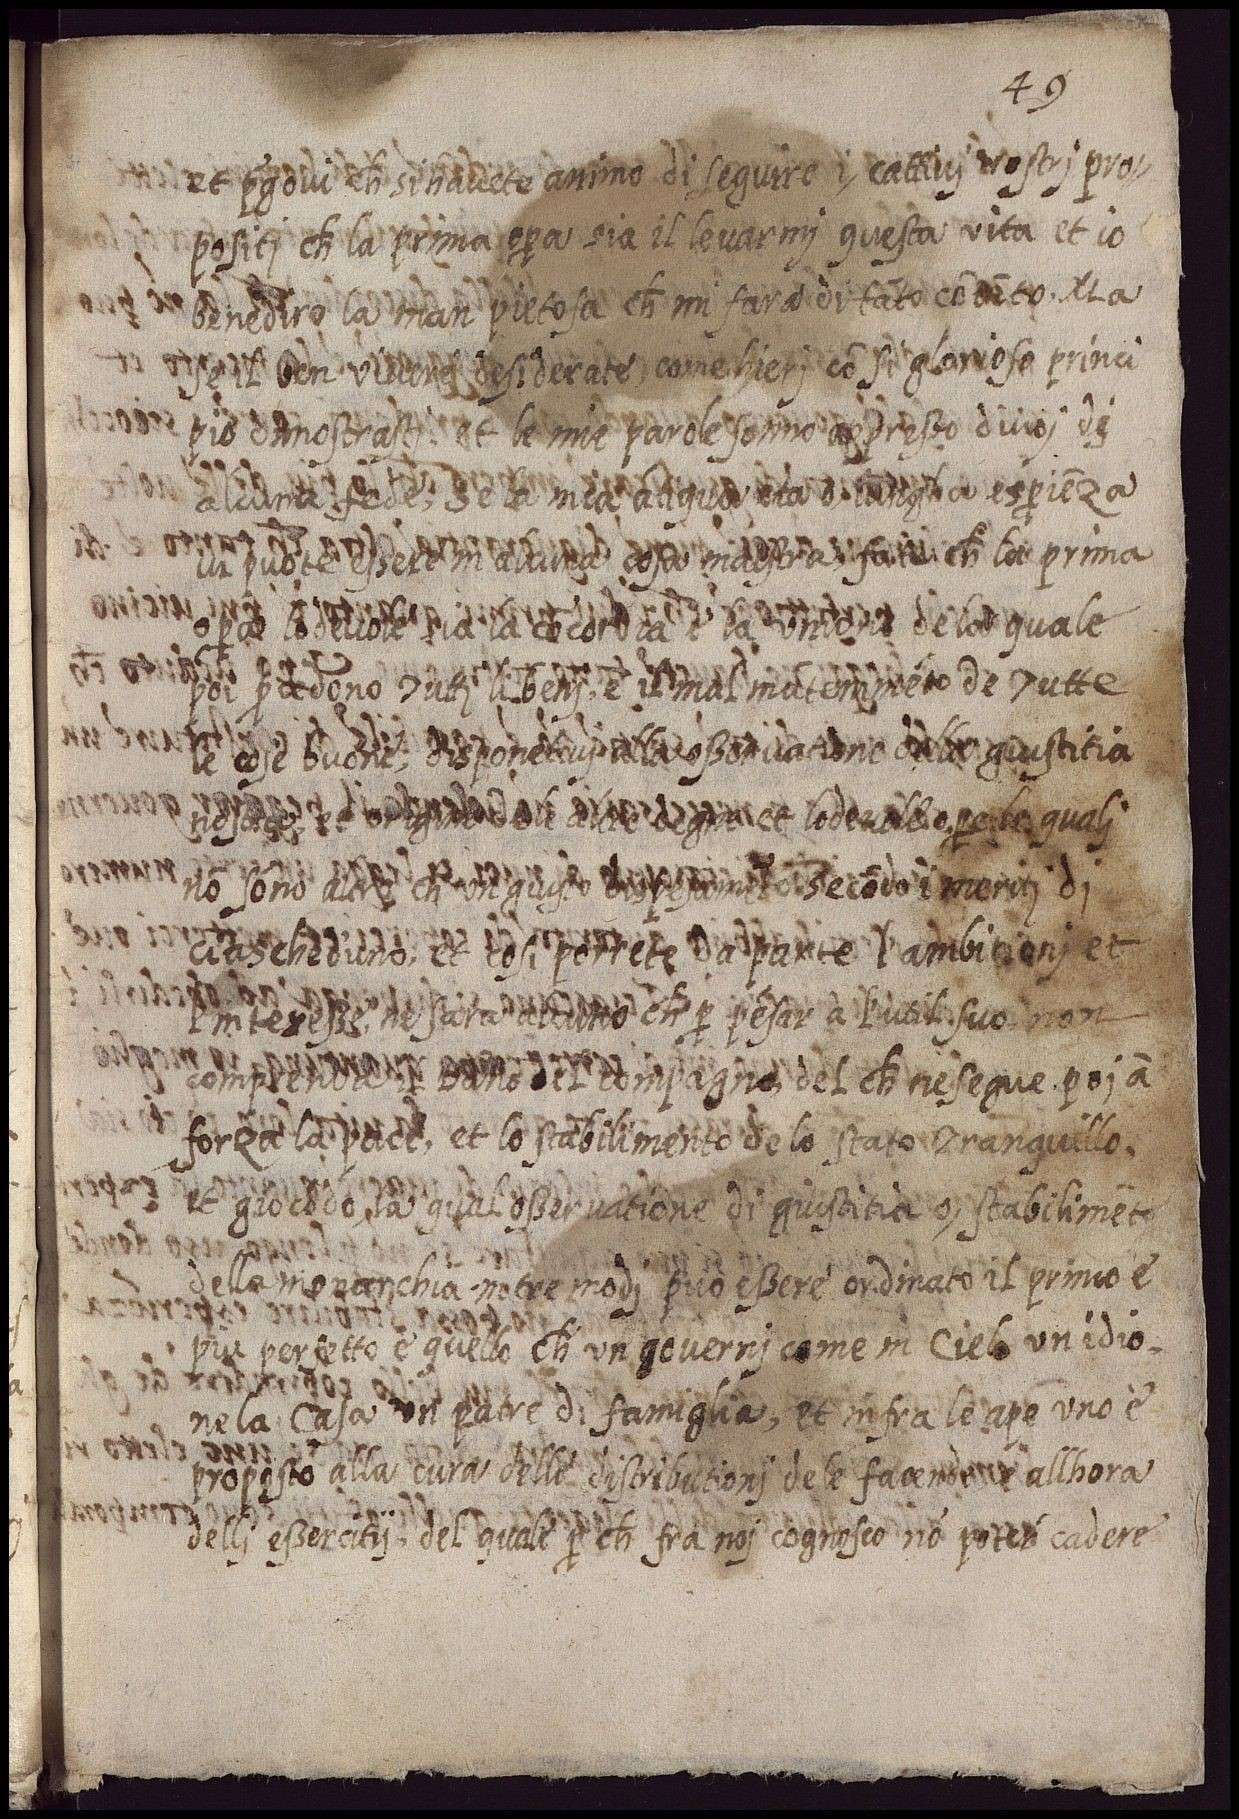 49
et p̱govi ch̄ si havete animo di seguire i cattivj vostrj pro//
positj ch̄ la prima op̱a sia il levarmj questa vita et io
benediro la man pietosa ch̄ mi fara di tāto cō . Ma
se il ben vivere desiderate, come hierj cō si glorioso princi
pio et le mie parole sonno appresso di voj di
alcuna fede, se la mia età o lungha esp̱iēza
vi puote essere in alcuna cosa maestra, fate ch̄ la prima
op̱a lodevole sia la cōcordia e la de la quale
poi tuttj li benj, e il mal de tutte
le cose buone, disponetevj alla osservatione della giustitia
et origine le qualj
nō sono altro ch̄ un giusto secōdo i meritj di
ciascheduno, et cosi porrete da parte l'ambitionj et
l'interesse, ne sara alcuno ch̄ p̱ pēsar à l'util suo non
il dāno del compagno, del ch̄ ne segue poj à
forza la pace, et lo stabilimento de lo stato tranquillo,
et giocōdo, la qual osservatione di giustitia o, stabilimēto
della monarchia in tre modj puo essere ordinato il primo e
piu perfetto è quello ch̄ un governj come in Cielo un idio,
ne la Casa un patre di famiglia, et infra le ape uno è
proposto alla cura delle distributionj de le facende e allhora
dellj essercitij, del quale p̱ ch̄ fra noj cognosco nō poter cadere